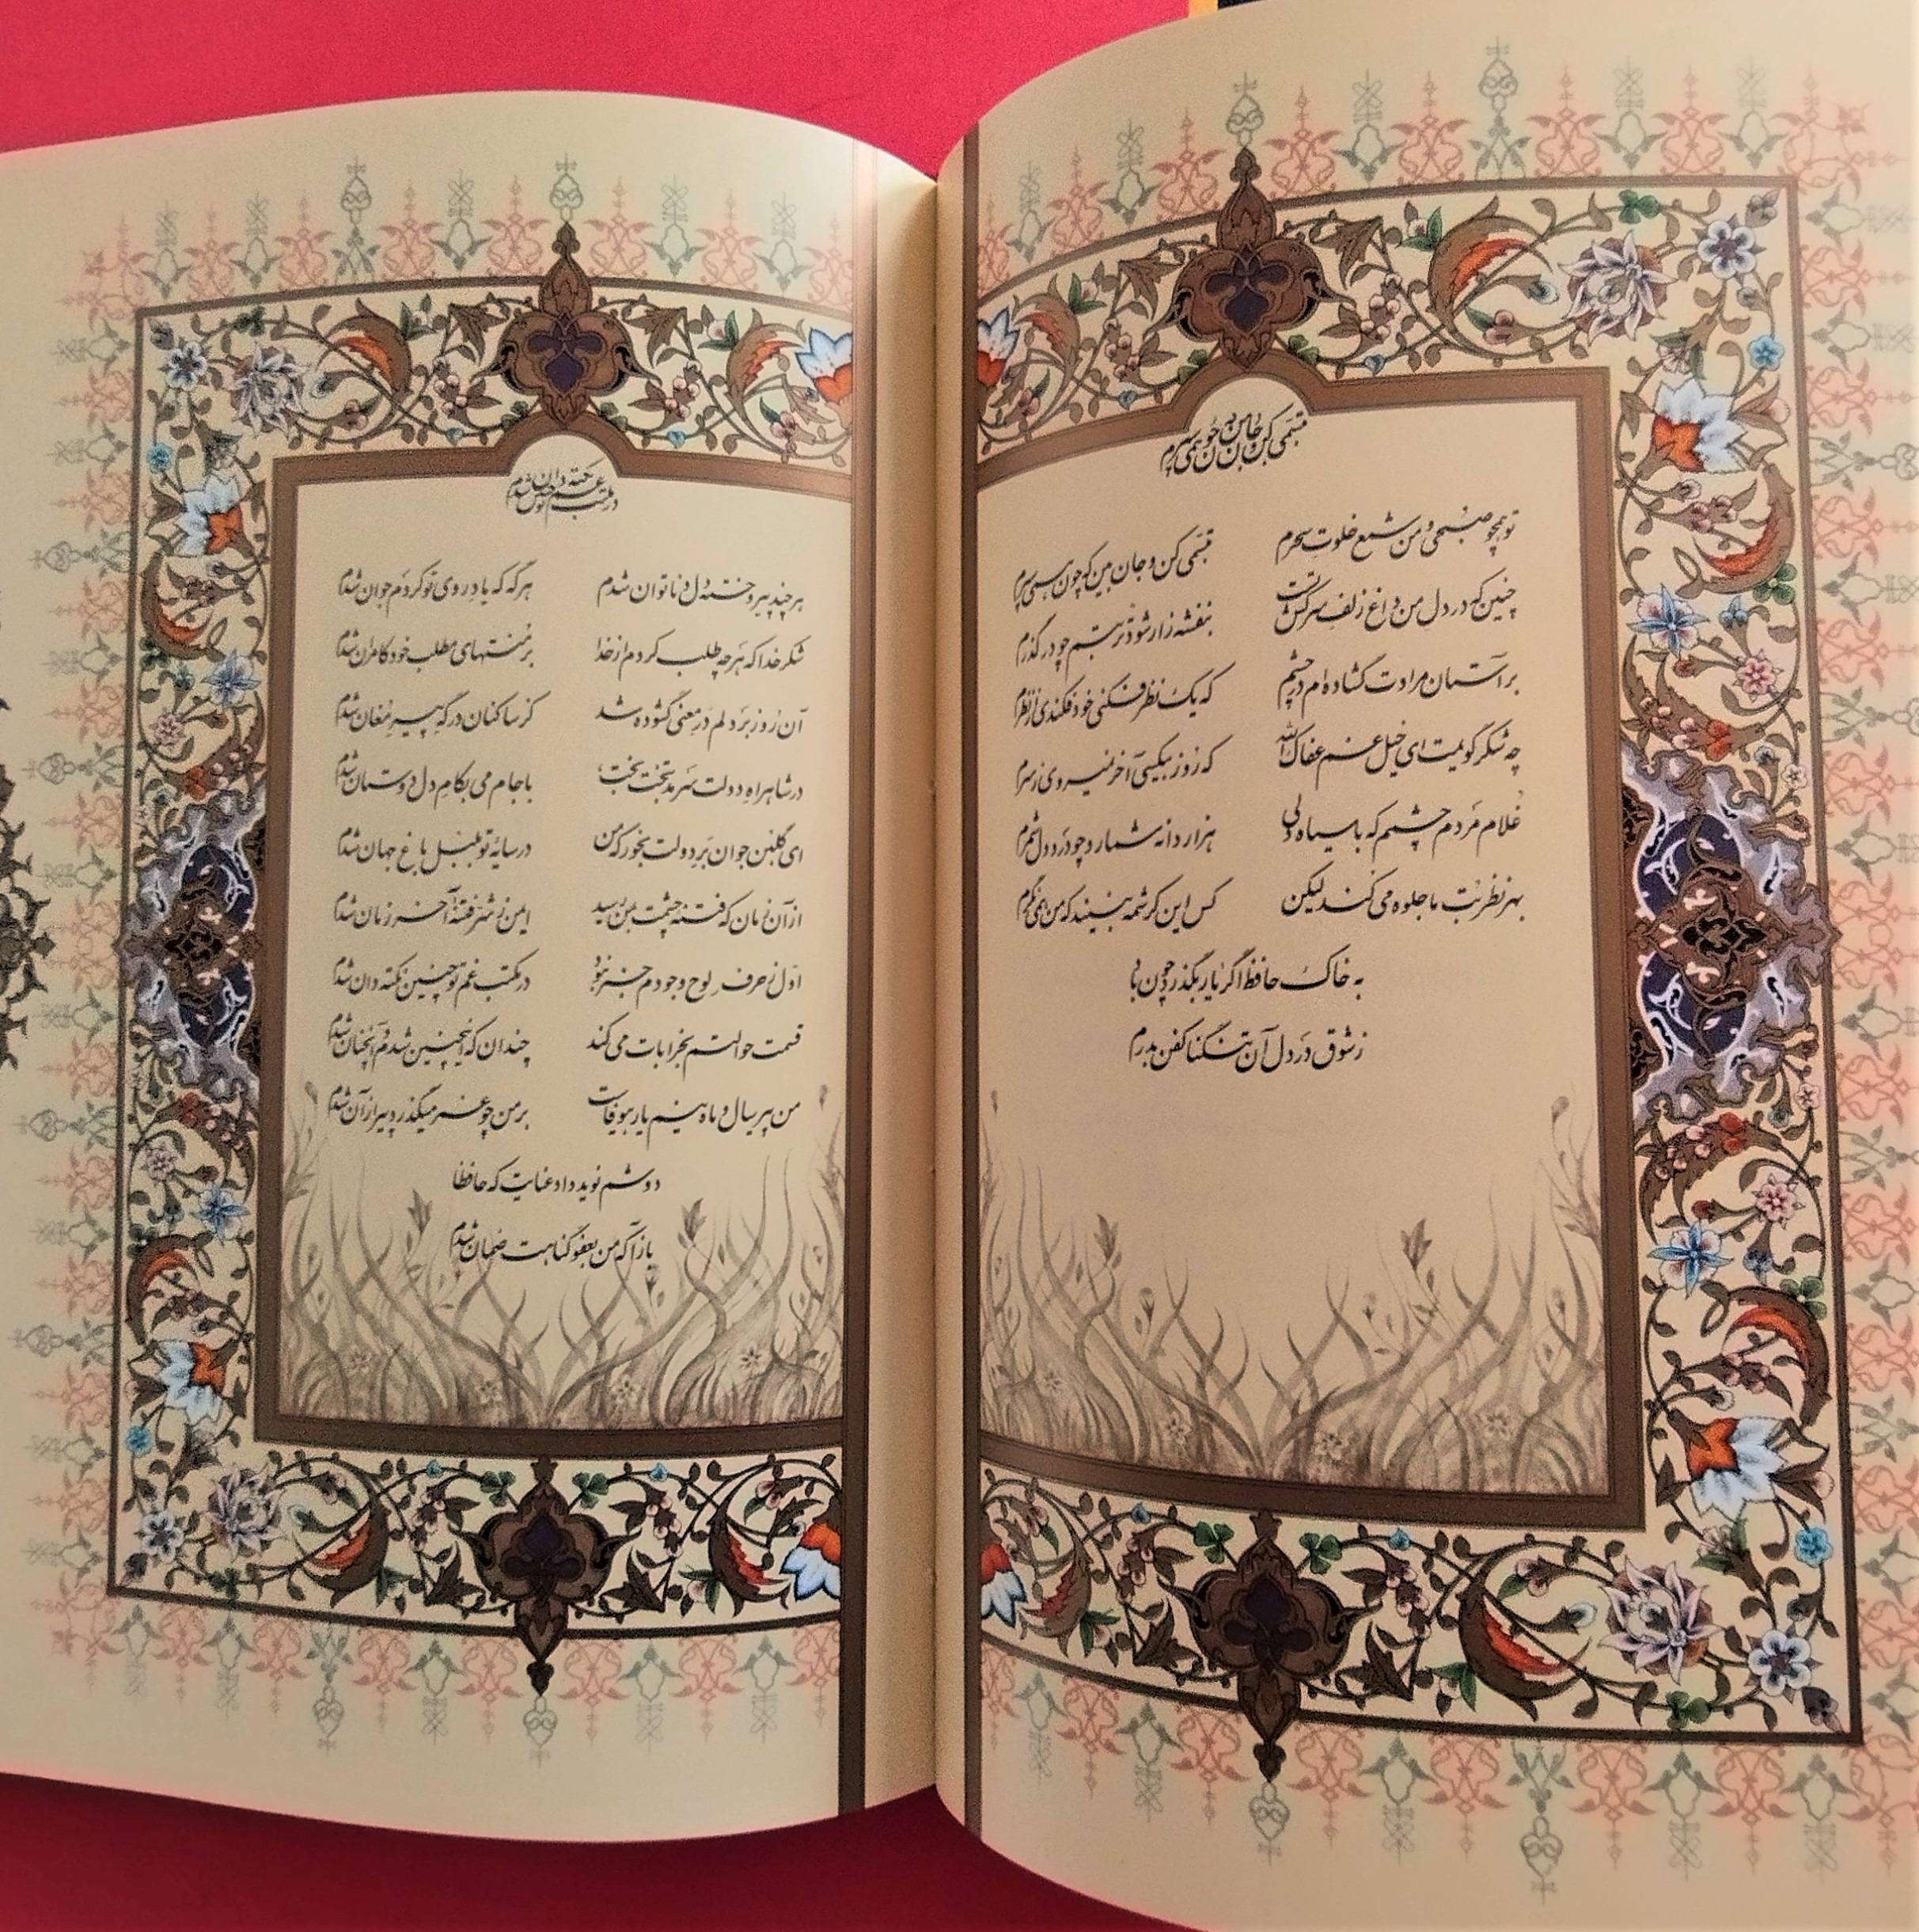 تبسمی کن و جان بین که چون همی سپرم
تو همچو صبحی و من شمع خلوت سحرم تبسمی کن و جان بین که چون همی سپرم
چنین که در دل من داغ زلف سرکش تست بنفشه زار شود تربتم چو درگذرم
بر آستان مرادت گشاده ام در چشم که یک نظر فکنی خود فکندی از نظرم
چه شکر گویمت ای خیل غم عفاک الله که روز بیکسی آخر نمیروی ز سرم
غلام مردم چشمم که با سیاه دلی هزار دانه شمارد چو درد دل شمرم
بهر نظر بت ما جلوه می کند لیکن کس این کرشمه نبیند که من همی نگرم
به خاک حافظ اگر یار بگذرد چون باد
ز شوق در دل آن تنگنا کفن بدرم
در مکتب غم تو چنین نکته دان شدم
هر چند پیر و خسته دل و ناتوان شدم هر گه که یاد روی تو کردم جوان شدم
شکر خدا که هر چه طلب کردم از خدا بر منتهای مطلب خود کامران شدم
آن روز بر دلم در معنی گشوده شد کز ساکنان درگه پیر مغان شدم
در شاهراه دولت سرمد بتخت بخت با جام می بکام دل دوستان شدم
ای گلبن جوان بر دولت بخور که من در سایه تو بلبل باغ جهان شدم
از آن زمان که فتنه چشمت بمن رسید ایمن ز شر فتنه آخر زمان شدم
اول ز حرف لوح وجودم خبر نبود در مکتب غم تو چنین نکته دان شدم
قسمت حوالتم بخرابات می کند چندان که اینچنین شدم و آنچنان شدم
من پیر سال و ماه نیم یار بیوفاست بر من چو عمر میگذرد پیر از آن شدم
دوشم نوید داد عنایت که حافظا
بازآ که من بعفو گناهت ضمان شدم